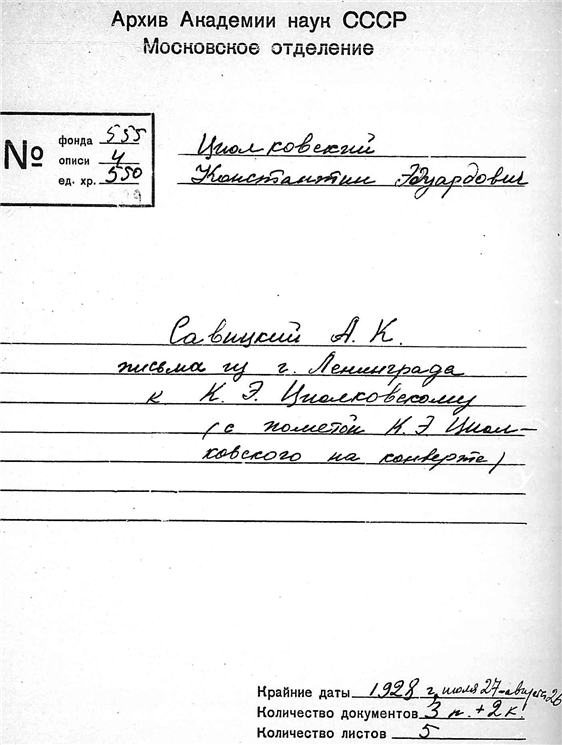 Архив Академии наук СССР
Московское отделение
№
фонда 555
описи 4
ед. хр. 550
Циолковский
Константин Эдуардович
Савицкий А. К.
письма из г. Ленинграда
к К. Э. Циолковскому
(с пометой К. Э Циол-
ковского на конверте)
Крайние даты 1928 г, июля 27-августа 26
Количество документов 3 п. + 2 к.
Количество листов 5